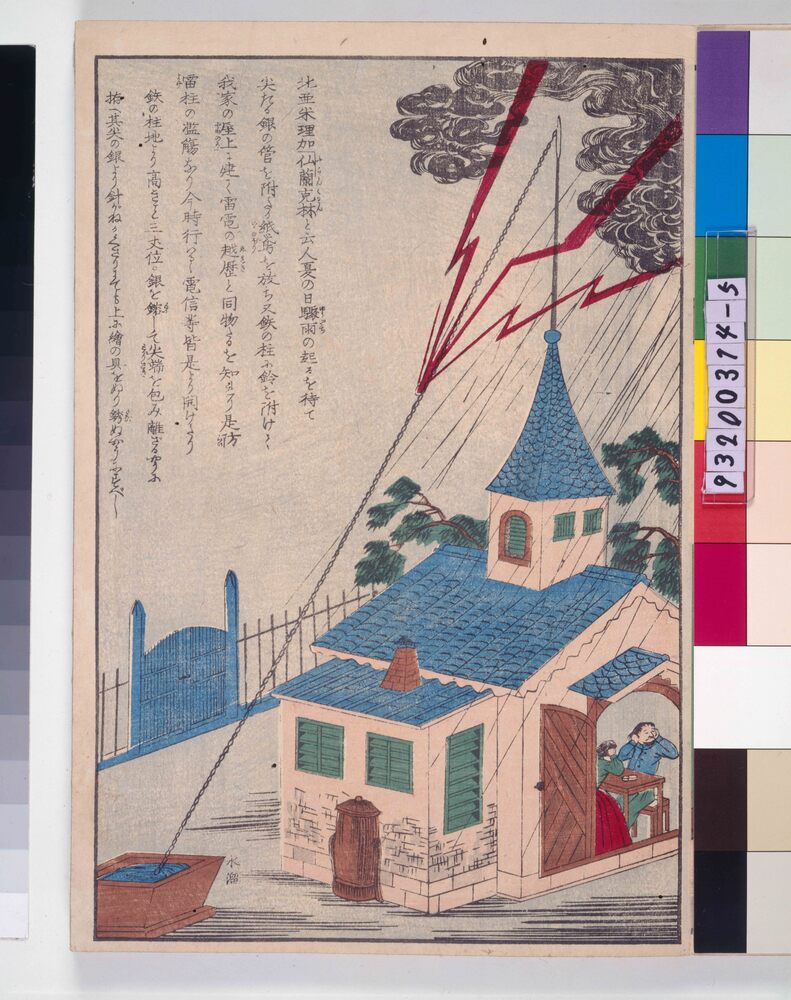 北亜米理加仏蘭克林と云人夏の日驟雨の起るを待て
尖たる銀の管を附たる紙鳶を放ち又鉄の柱に鈴を附け
我家の屋上に建て雷電の越歴と同物なるを知れり是防
雷柱の濫觴なり今時行るゝ電信等皆是より開けたり
鉄の柱地より高きこと三丈位銀を 尖端を包み離ざるやうに
其尖の銀より針がね までも上に繪の具をぬり ぬやうに すべし
水溜
93200374-5